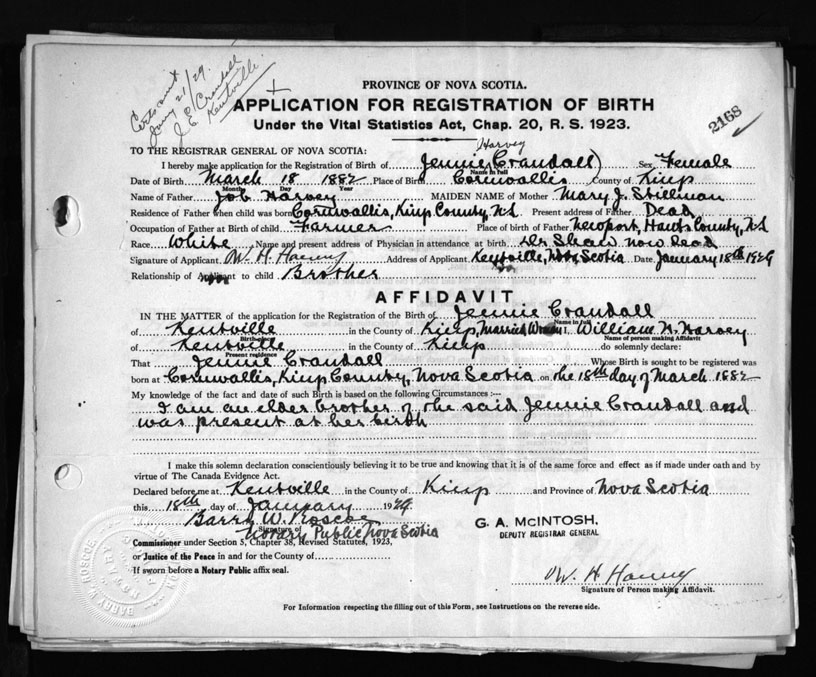 Certs sent
Jany 21/29.
J E Crandall
Kentville
PROVINCE OF NOVA SCOTIA.
APPLICATION FOR REGISTRATION OF BIRTH
Under the Vital Statistics Act, Chap. 20, R. S. 1923.
2168
TO THE REGISTRAR GENERAL OF NOVA SCOTIA:
Harvey
I hereby make application for the Registration of Birth of Jennie (Crandall) Sex Female
Name in full
Date of Birth March 18 1882 Place of Birth Cornwallis County of Kings
Month Day Year
Name of Father Job Harvey MAIDEN NAME of Mother Mary J. Stillman
Residence of Father when child was born Cornwallis, Kings County, N.S Present address of Father Dead
Occupation of Father at Birth of child Farmer Place of birth of Father Newport, Hants County, N.S
Race White Name and present address of Physician in attendance at birth Dr Shaw now dead
Signature of Applicant W. H. Harvey Address of Applicant Kentville, Nova Scotia Date January 18th 1929
Relationship of Applicant to child Brother
AFFIDAVIT
IN THE MATTER of the application for the Registration of the Birth of Jennie Crandall
Name in full
of Kentville in the County of Kings, Married Woman I, William H. Harvey
Birthplace Name of person making Affidavit
of Kentville in the County of Kings do solemnly declare:
Present residence
That Jennie Crandall Whose Birth is sought to be registered was
born at Cornwallis, Kings County, Nova Scotia on the 18th day of March 1882
My knowledge of the fact and date of such Birth is based on the following Circumstances :—
I am an elder brother of the said Jennie Crandall and
was present at her birth
I make this solemn declaration conscientiously believing it to be true and knowing that it is of the same force and effect as if made under oath and by
virtue of The Canada Evidence Act.
Declared before me at Kentville in the County of Kings and Province of Nova Scotia
this 18th day of January 1929.
Barry W. Roscoe
Signature of
Notary Public Nova Scotia
G. A. McINTOSH,
DEPUTY REGISTRAR GENERAL
Commissioner under Section 5, Chapter 38, Revised Statutes, 1923,
or Justice of the Peace in and for the County of
If sworn before a Notary Public affix seal.
W H Harvey
Signature of Person making Affidavit.
For Information respecting the filling out of this Form, see Instructions on the reverse side.
BARRY W. ROSCOE